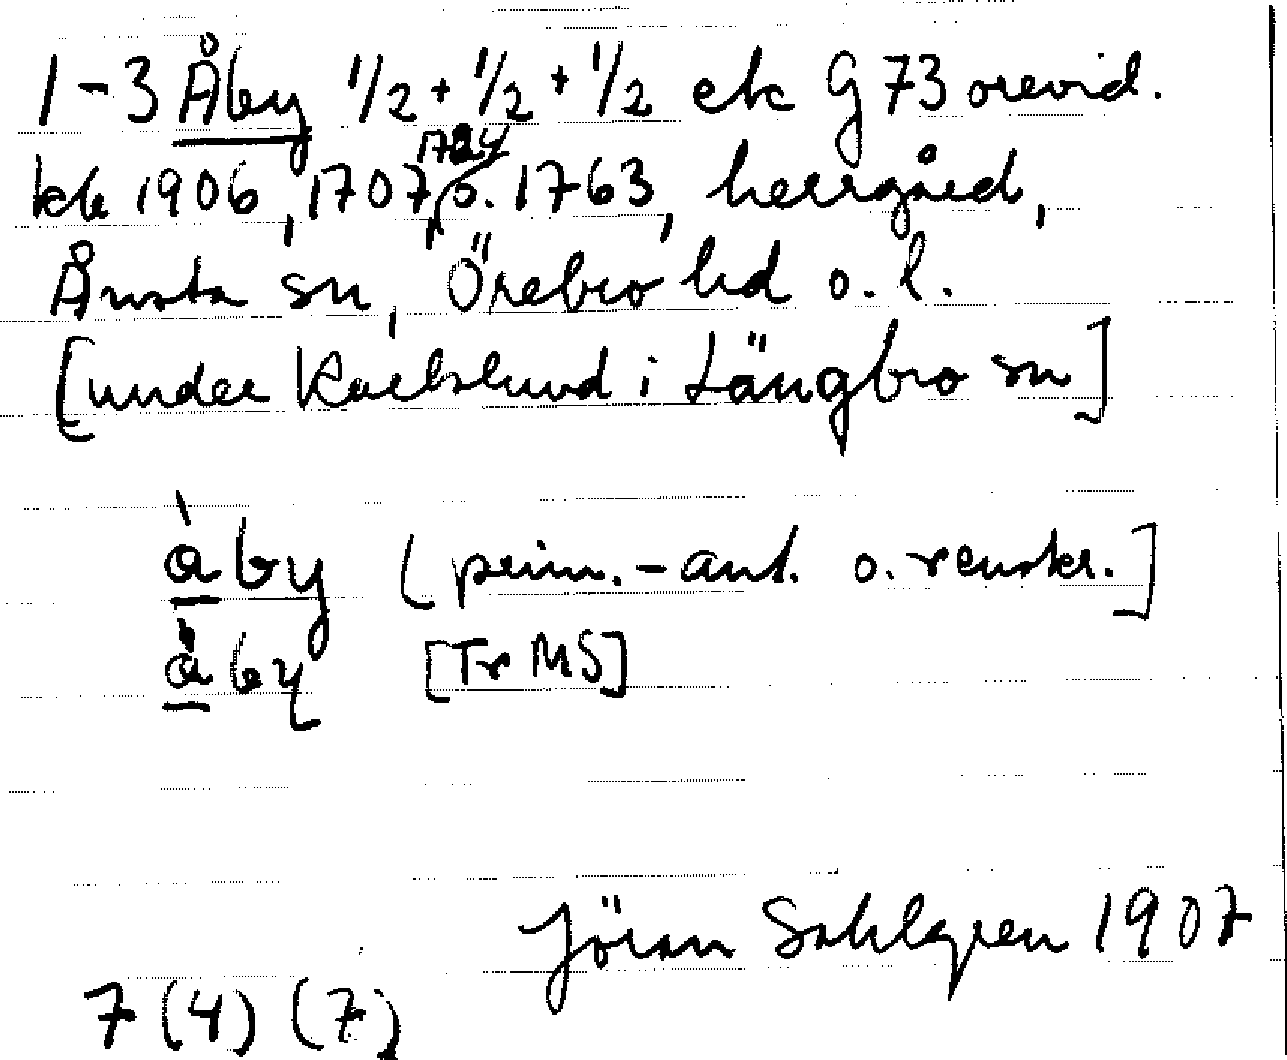 1-3 Åby 1/2 + 1/2 + 1/2 etk G 73 orevid.
kk 1906, 1707, 1724 o. 1763, herrgård,
Ånsta sn, Örebro hd o. l.
[under Karlslund i Längbro sn]
åby [prim.-ant. o. renskr.]
åby [Tr MS]
Jöran Sahlgren 1907
7 (4) (7)